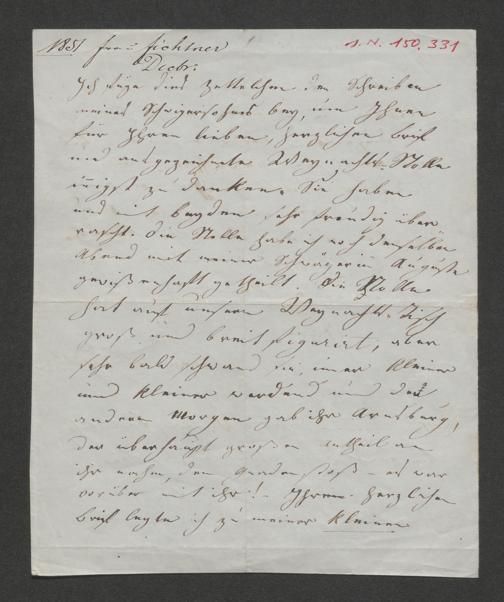 1851 Franz Fichtner
I.N. 150.331
Ich füge dies Zettelchen dem Schreiben
meines Schwiegersohnes bey, um Ihnen
für Ihren lieben, herzlichen Brief
und ausgezeichnete Weynachts-Stolle
innigst zu danken. Sie haben
uns mit beyden sehr freudig über
rascht. Die Stolle habe ich noch denselben
Abend mit meiner Schwägerin Auguste
gewissenhaft getheilt. Die Stolle
hat auf unserem Weynachts-Tisch
groß und breit figurirt, aber
sehr bald schwand sie, immer kleiner
und kleiner werdend und den
anderen Morgen gab ihr Arnsburg,
der überhaupt großen Antheil an
ihr nahm, den Gnadenstoß – es war
vorüber mit ihr! – Ihren herzlichen
Brief legte ich zu meiner kleinen